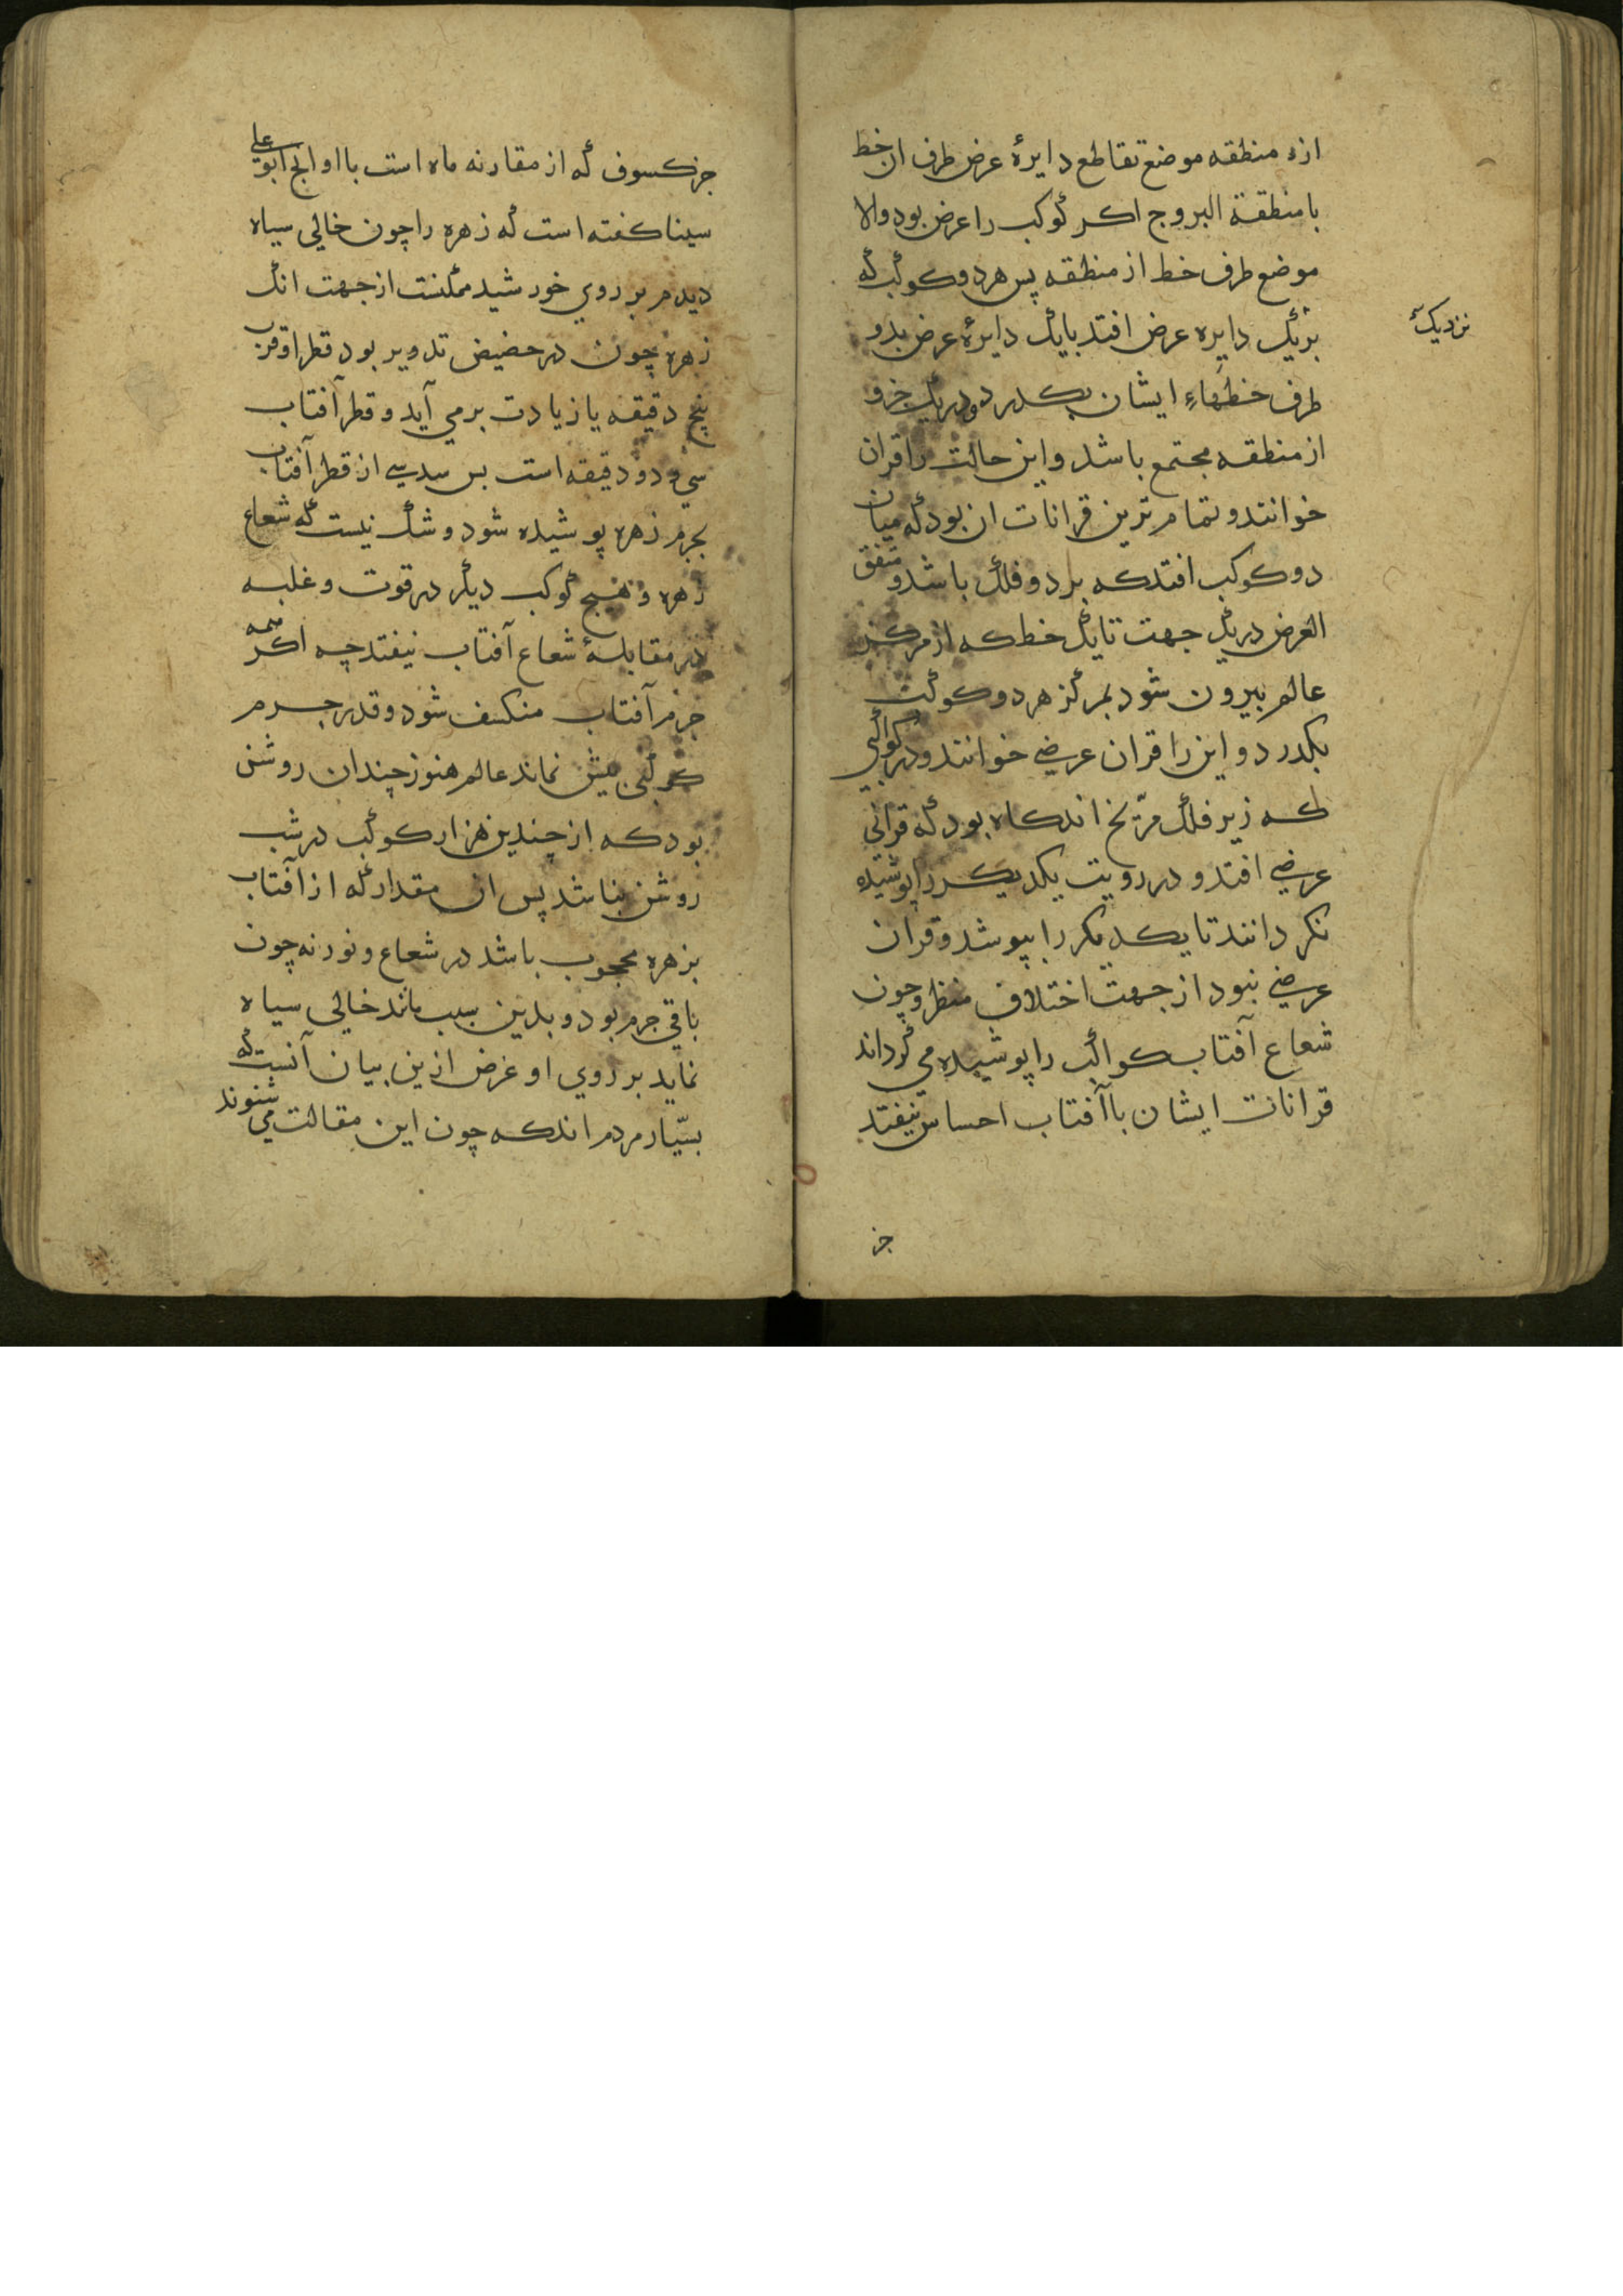 ازء منطقه موضع تقاطع دایرهٔ عرض طرف ان خط
با منطقة البروج اکر کوکب را عرض بود والا
موضع طرف خط از منطقه پس هر دو کوکب که
بریک دایره عرض افتد بایک دایرهٔ عرض بدو
نزدیک
طرف خطهاءِ ایشان بکدرد ودریک جزو
از منطقه مجتمع باشد واین حالت را قران
خوانند وتمام ترین قرانات ان بود که میان
دو کوکب افتد که بر دو فلک باشد ومتفق
العرض دریک جهت تایک خط که از مرکز
عالم بیرون شود بمرکز هر دو کوکب
بکدرد واین را قران عرضی خوانند ودر کواکبی
که زیر فلک مرّیخ اند کاه بود که قرانی
عرضی افتد و در رویت یکدیکر را پوشیده
نکردانند تا یکدیکر را بپوشد وقران
عرضی نبود از جهت اختلاف منظر وچون
شعاع آفتاب کواکب را پوشیده می کرداند
قرانات ایشان باآفتاب احساس نیفتد
جز
جز کسوف که از مقارنه ماه است با او ابوعلی
سینا کفته است که زهره را چون خالی سیاه
دیدم بر روی خورشید ممکنست از جهت انک
زهره چون در حضیض تدویر بود قطر او قرب
پنج دقیقه یا زیادت برمی آید وقطر آفتاب
سی ودو دقیقه است بس سدسی از قطر آفتاب
بجرم زهره پوشیده شود وشک نیست که شعاع
زهره وهیج کوکب دیکر در قوت وغلبه
در مقابلهٔ شعاع آفتاب نیفتد چه اکر همه
جرم آفتاب منکسف شود وقدر جرم
کوکبی بیش نماند عالم هنوز چندان روشن
بود که از چندین هزار کوکب در شب
روشن نباشد پس ان مقدار که از آفتاب
بزهره محجوب باشد در شعاع ونور نه چون
باقی جرم بود وبدین سبب مانند خالی سیاه
نماید بر روی او وغرض ازین بیان آنست که
بسیار مردم اند که چون این مقالت می شنوند